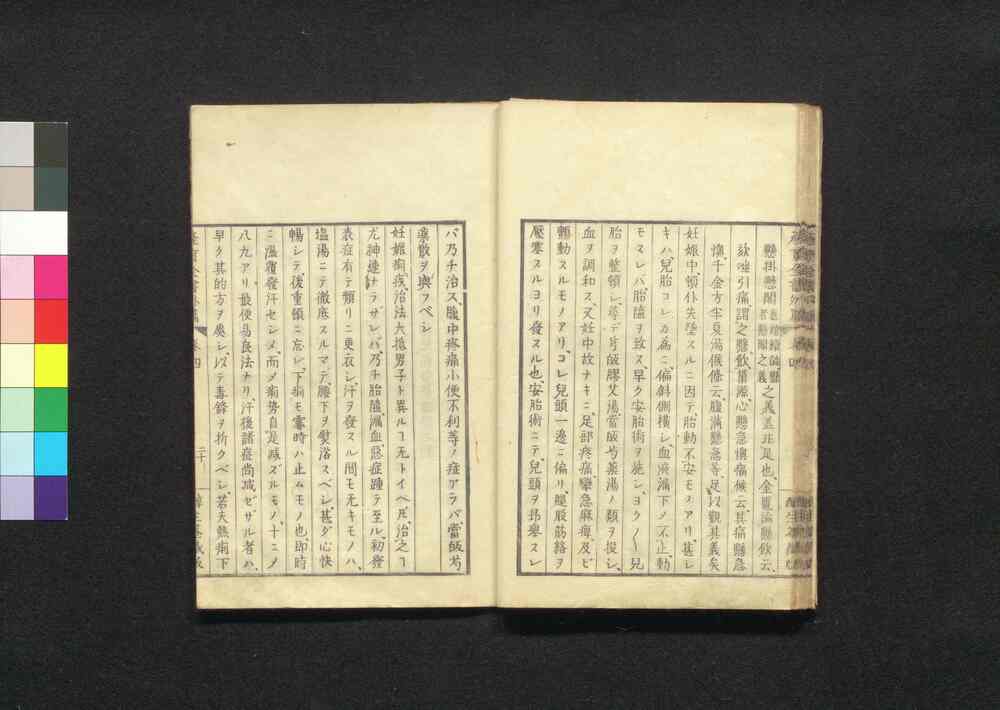 懸掛懸閣之義並非是也、金匱論懸飲云、
欬唾引痛、謂之懸飲、巢源心懸急懊痛候云、其痛懸急
懊、千金方半夏湯條云、腹滿懸急等、足以觀其義矣
妊娠中、頓仆失墜スルニ因テ胎動不安モノアリ、甚シ
キハ、兒胎コレカ為ニ、偏斜側橫シ、血液漏下ノ不止、動
モスレハ、胎隨ヲ致ス、早ク安胎術ヲ施シ、ヨク〳〵兒
胎ヲ整頓シ、尋デ芎歸膠艾湯、當歸芍藥湯ノ類ヲ投シ、
血ヲ調和ス、又妊中故ナキニ、足部疼痛攣急麻痺、及ビ
轉動スルモノアリ、コレ兒頭一邊ニ偏リ、腿股筋絡ヲ
壓塞スルヨリ發スル也、安胎術ニテ、兒頭ヲ昇擧スレ
バ乃チ治ス、腹中疼痛小便不利等ノ症アラバ、當歸芍
藥散ヲ與フベシ
妊娠痢疾、治法大抵男子ト異ルヿ无トイヘ𪜈、治之ヿ
尤神速ナラザレバ、乃チ胎隨漏血、惡症踵テ至ル、初發
表症有テ頻リニ更衣シ、汗ヲ發スル間モ无キモノハ、
塩湯ニテ徹底スルマデ、腰下ヲ熨浴スベシ、甚ダ心快
暢シテ、後重頓ニ忘レ、下痢モ霎時ハ止ムモノ也、即時
ニ溫覆發汗セシメ、而〆痢勢自是減ズルモノ、十ニノ
八九アリ、最便易良法ナリ、汗後諸症尚減ゼザル者ハ、
早ク其的方ヲ處シ、以テ毒鋒ヲ折クベシ、若夫熱痢下